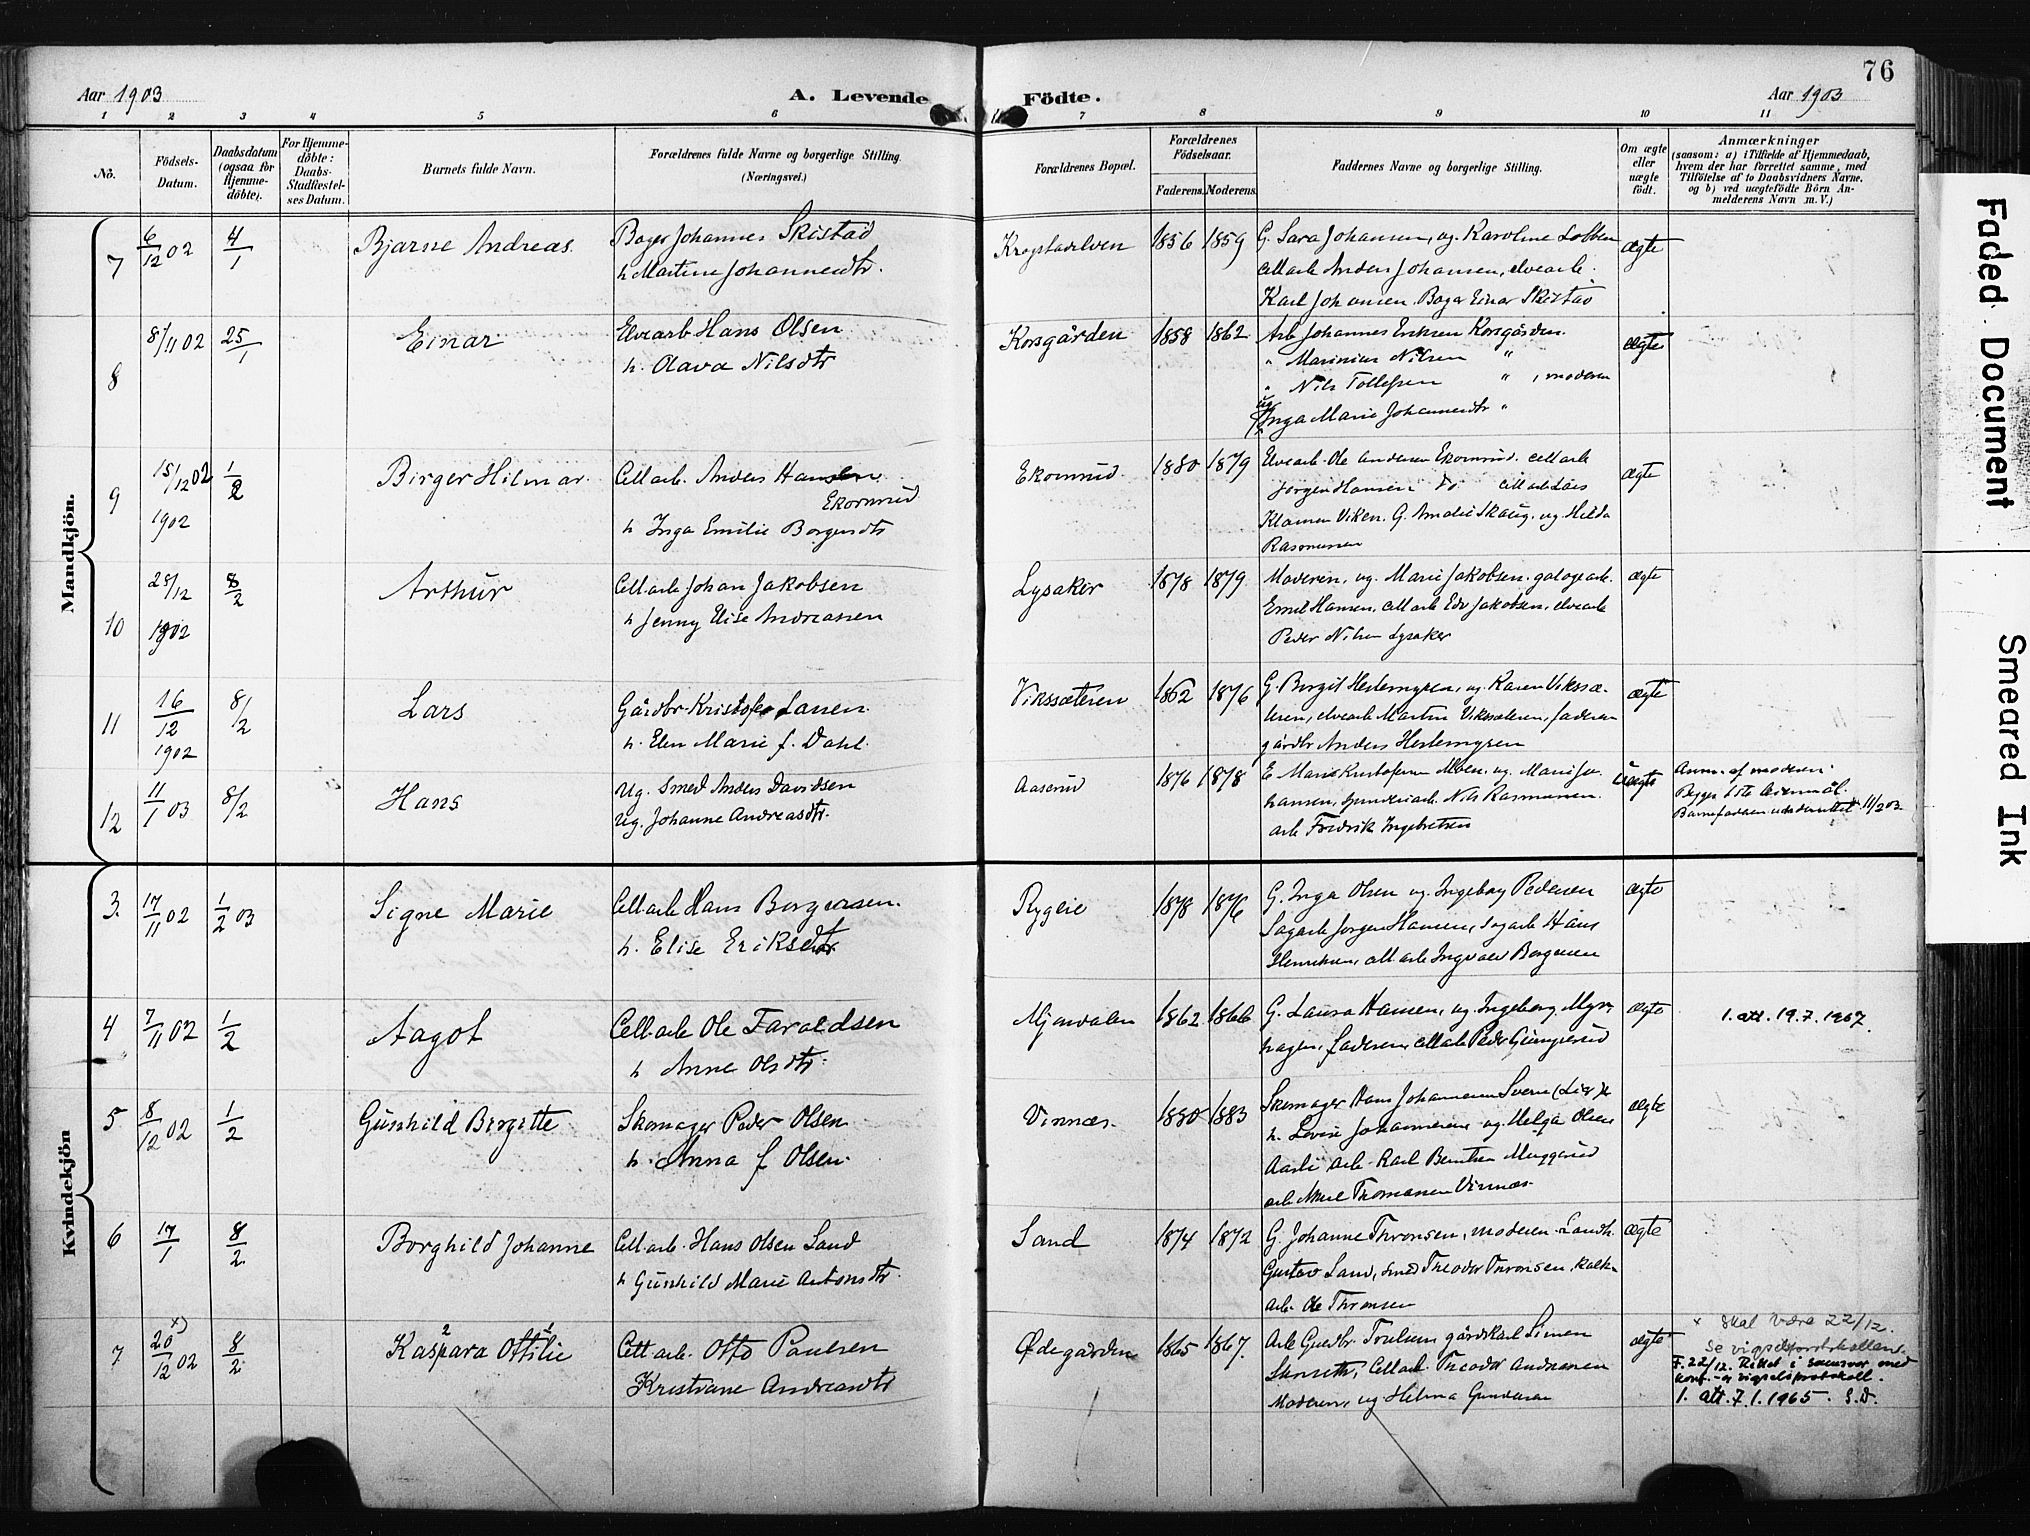 76
Aar 1903
A. Levende
Födte.
Aar 1903
1 2 3 4 5 6 7 8 9 10 11
No.
Födsels-
Datum.
Daabsdatum
(ogsaa for
Hjemme-
döbte).
For Hjemme-
döbte:
Daabs-
Stadfæstel-
ses Datum.
Barnets fulde Navn.
Forældrenes fulde Navne og borgerlige Stilling.
(Næringsvei.)
Forældrenes Bopæl.
Forældrenes
Födselsaar.
Faderens. Moderens.
Faddernes Navne og borgerlige Stilling.
Om ægte
eller
uægte
født.
Anmærkninger
(saasom: a) i Tilfælde af Hjemmedaab,
hvem der har forrettet samme, med
Tilföielse af to Daabsvidners Navne,
og b) ved uægtefödte Börn An-
melderens Navn m. V.)
Mandkjön.
7 6/12 02 4/1 Bjarne Andreas. Bager Johannes Skistad
h Martine Johannesdtr.
Krogstadelven 1856 1859 G. Sara Johansen, og Karoline Lobben
cellarb Anders Johansen, elvearb.
Karl Johansen. Bager Einar Skistad
ægte
8 8/11 02 25/1 Einar Elvearb Hans Olsen
h. Olava Nilsdtr
Korsgården 1858 1862 Arb Johannes Eriksen Korsgården.
" Marinius Nilsen "
" Nils Tollefsen " , moderen
og Inga Marie Johannesdtr "
ægte
9 15/12 02 1/2 Birger Hilmar. Cellarb. Anders Hansen
1902 Ekornrud
h Inga Emilie Borgersdtr
Ekornrud. 1880 1879 Elvearb. Ole Andersen Ekornrud. cellarb
Jørgen Hansen do cellarb Lars
Klausen Viken. G. Amalie Skaug. og Hilda
Rasmussen
ægte
10 25/12 8/2 Arthur Cellarb Johan Jakobsen
1902 h Jenny Elise Andreassen
Lysaker 1878 1879 Moderen, og Marie Jakobsen.
Emil Hansen, cellarb Edv Jakobsen, elvearb
Peder Nilsen Lysaker
ægte
11 16/12 8/2 Lars Gårdbr. Kristofer Larsen
1902 h. Elen Marie f. Dahl.
Vikssæteren 1862 1876 G. Borgit Hestemyren, og Karen Vikssæ-
teren, elvearb Martin Vikssæteren, faderen
gårdbr Anders Hestemyren
ægte
12 11/1 03 8/2 Hans Ug. Smed Anders Davidsen
Ug. Johanne Andreasdtr.
Aaserud 1876 1878 E Marie Kristofersen Moen, og Marie Jo-
hansen, Nils Rasmussen
arb Fredrik Ingebretsen
uægte
Anm. af moderen.
Begges 1ste leiermål.
Barnefaderen underrettet 11/2 03.
Kvindekjön
3. 17/11 02 1/2 03 Signe Marie Cellarb Hans Borgersen.
h. Elise Eriksdtr
Ryglie 1878 1876 G. Inga Olsen og Ingeborg Pedersen
Sagarb Jørgen Hansen, sagarb Hans
Henriksen, cellarb Ingvald Borgersen
ægte
4 7/11 02 1/2 Aagot Cellarb Ole Faraldsen
h Anne Olsdtr.
Mjøndalen 1862 1866 G. Laura Hansen, og Ingeborg Myr-
hagen, faderen, cellarb Peder
ægte
1. att. 19.7.1967.
5 8/12 02 1/2 Gunhild Birgitte Skomager Peder Olsen
h. Anna f Olsen.
Vinnæs. 1880 1883 Skomager Hans Johannessen (Lier)
h. Lovise Johannesen og Helga Olsen
Aasli arb. Karl Berntsen Muggerud
arb Thomassen Vinnæs.
ægte
6 17/1 8/2 Borghild Johanne Cellarb. Hans Olsen Sand
h Gunhild Marie Antonsdtr.
Sand 1874 1872 G. Johanne Thronsen, moderen. Landh.
Gustav Sand, smed Theodor Thronsen, kalk-
arb. Ole Thronsen
ægte
7 20/12 02 x) 8/2 2 Kaspara 1 Ottilie Cellarb. Otto Paulsen
Kristiane Andreasdtr
Ødegården 1865 1867. Arb Gudbr. Paulsen gårdskarl Simen
Cellarb. Theodor Andreassen
Moderen, og Helma Gundersen
ægte
x Skal være 22/12.
Se vigselsprotokollen.
F. 22/12. Rettet i samsvar med
konf.- og vigselsprotokoll.
1. att. 7.1.1965. S.D.
Faded Document
Smeared Ink